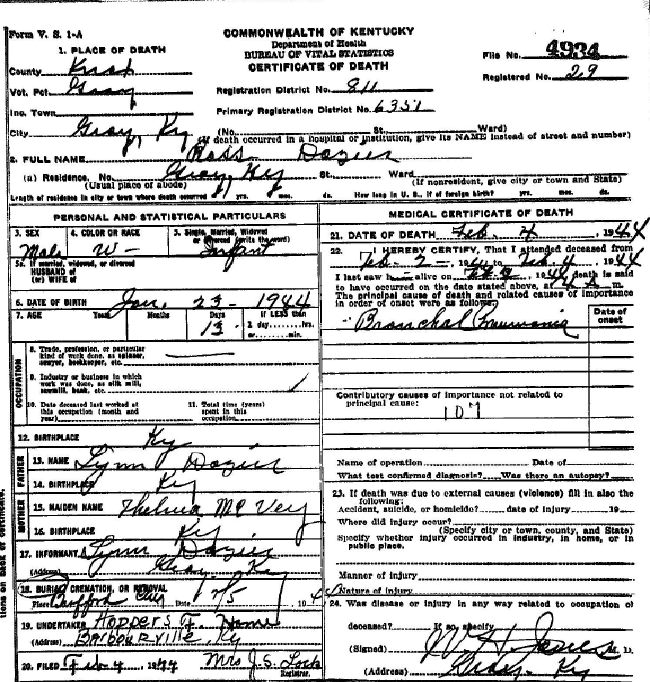 Form V. S. 1-A
COMMONWEALTH OF KENTUCKY
Department of Health
BUREAU OF VITAL STATISTICS
CERTIFICATE OF DEATH
File No. 4934
Registered No. 29
1. PLACE OF DEATH
County Knox
Vot. Pct. Gray
Inc. Town
City Gray, Ky
Registration District No. 811
Primary Registration District No. 6351
(No. St. Ward)
(If death occurred in a hospital or institution, give its NAME instead of street and number)
2. FULL NAME Ross Dozier
(a) Residence. No. Gray, Ky St. Ward
(Usual place of abode) (If nonresident, give city or town and State)
Length of residence in city or town where death occurred yrs. mos. ds. How long in U. S., if of foreign birth? yrs. mos. ds.
PERSONAL AND STATISTICAL PARTICULARS
3. SEX Male
4. COLOR OR RACE W
5. Single, Married, Widowed or Divorced (write the word) Infant
5a. If married, widowed, or divorced
HUSBAND of
(or) WIFE of
6. DATE OF BIRTH Jan. 23 - 1944
7. AGE Years Months Days 13 If LESS than 1 day, hrs. or min.
OCCUPATION
8. Trade, profession, or particular kind of work done, as spinner, sawyer, bookkeeper, etc.
9. Industry or business in which work was done, as silk mill, sawmill, bank, etc.
10. Date deceased last worked at this occupation (month and year)
11. Total time (years) spent in this occupation
12. BIRTHPLACE Ky
FATHER
13. NAME Lynn Dozier
14. BIRTHPLACE Ky
MOTHER
15. MAIDEN NAME Thelma McVey
16. BIRTHPLACE Ky
17. INFORMANT Lynn Dozier
(Address) Gray, Ky
18. BURIAL, CREMATION, OR REMOVAL
Place Date 2/5 194
19. UNDERTAKER Hoppers F. Home
(Address) Barbourville, Ky
20. FILED Feb 4 1944 Mrs J. S. Lock
Registrar.
MEDICAL CERTIFICATE OF DEATH
21. DATE OF DEATH Feb. 4, 1944
22. I HEREBY CERTIFY, That I attended deceased from
Feb. 2 - 1944 to Feb. 4, 1944
I last saw h alive on 1944 death is said
to have occurred on the date stated above, at m.
The principal cause of death and related causes of importance
in order of onset were as follows:
Date of onset
Bronchal Pneumonia
Contributory causes of importance not related to
principal cause:
107
Name of operation Date of
What test confirmed diagnosis? Was there an autopsy?
23. If death was due to external causes (violence) fill in also the
following:
Accident, suicide, or homicide? date of injury 19
Where did injury occur?
(Specify city or town, county, and State)
Specify whether injury occurred in industry, in home, or in
public place.
Manner of injury
Nature of injury
24. Was disease or injury in any way related to occupation of
deceased? If so, specify
(Signed) W H Jones M. D.
(Address) Gray, Ky